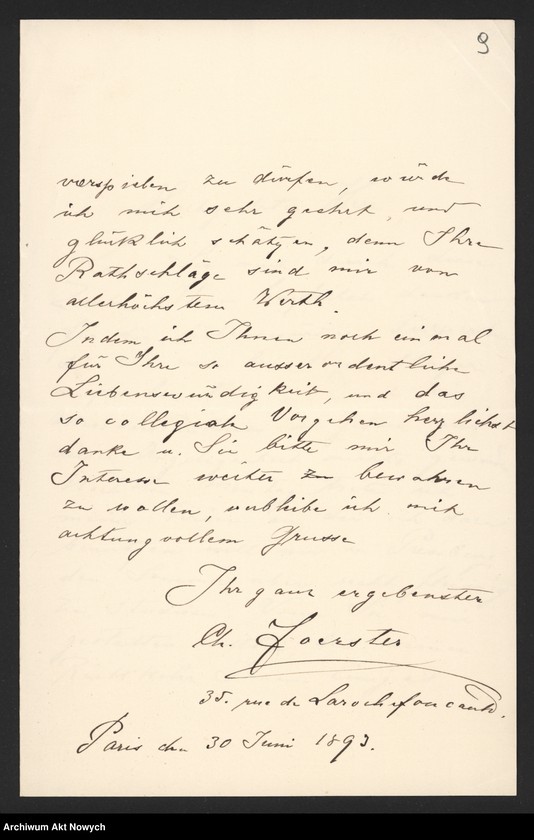 9
vorspielen zu dürfen, würde
ich mich sehr geehrt, und
glücklich schätzen, denn Ihre
Rathschläge sind mir von
allerhöchstem Werth.
Indem ich Ihnen noch einmal
für Ihre so ausserordentliche
Liebenswürdigkeit, und das
so collegiale Vorgehen herzlichst
danke u. Sie bitte mir Ihr
Interesse weiter zu bewahren
zu wollen, verbleibe ich mit
achtungsvollem Grusse
Ihr ganz ergebenster
Ch. Foerster
35. rue de Larochefoucauld.
Paris den 30 Juni 1893.
Archiwum Akt Nowych